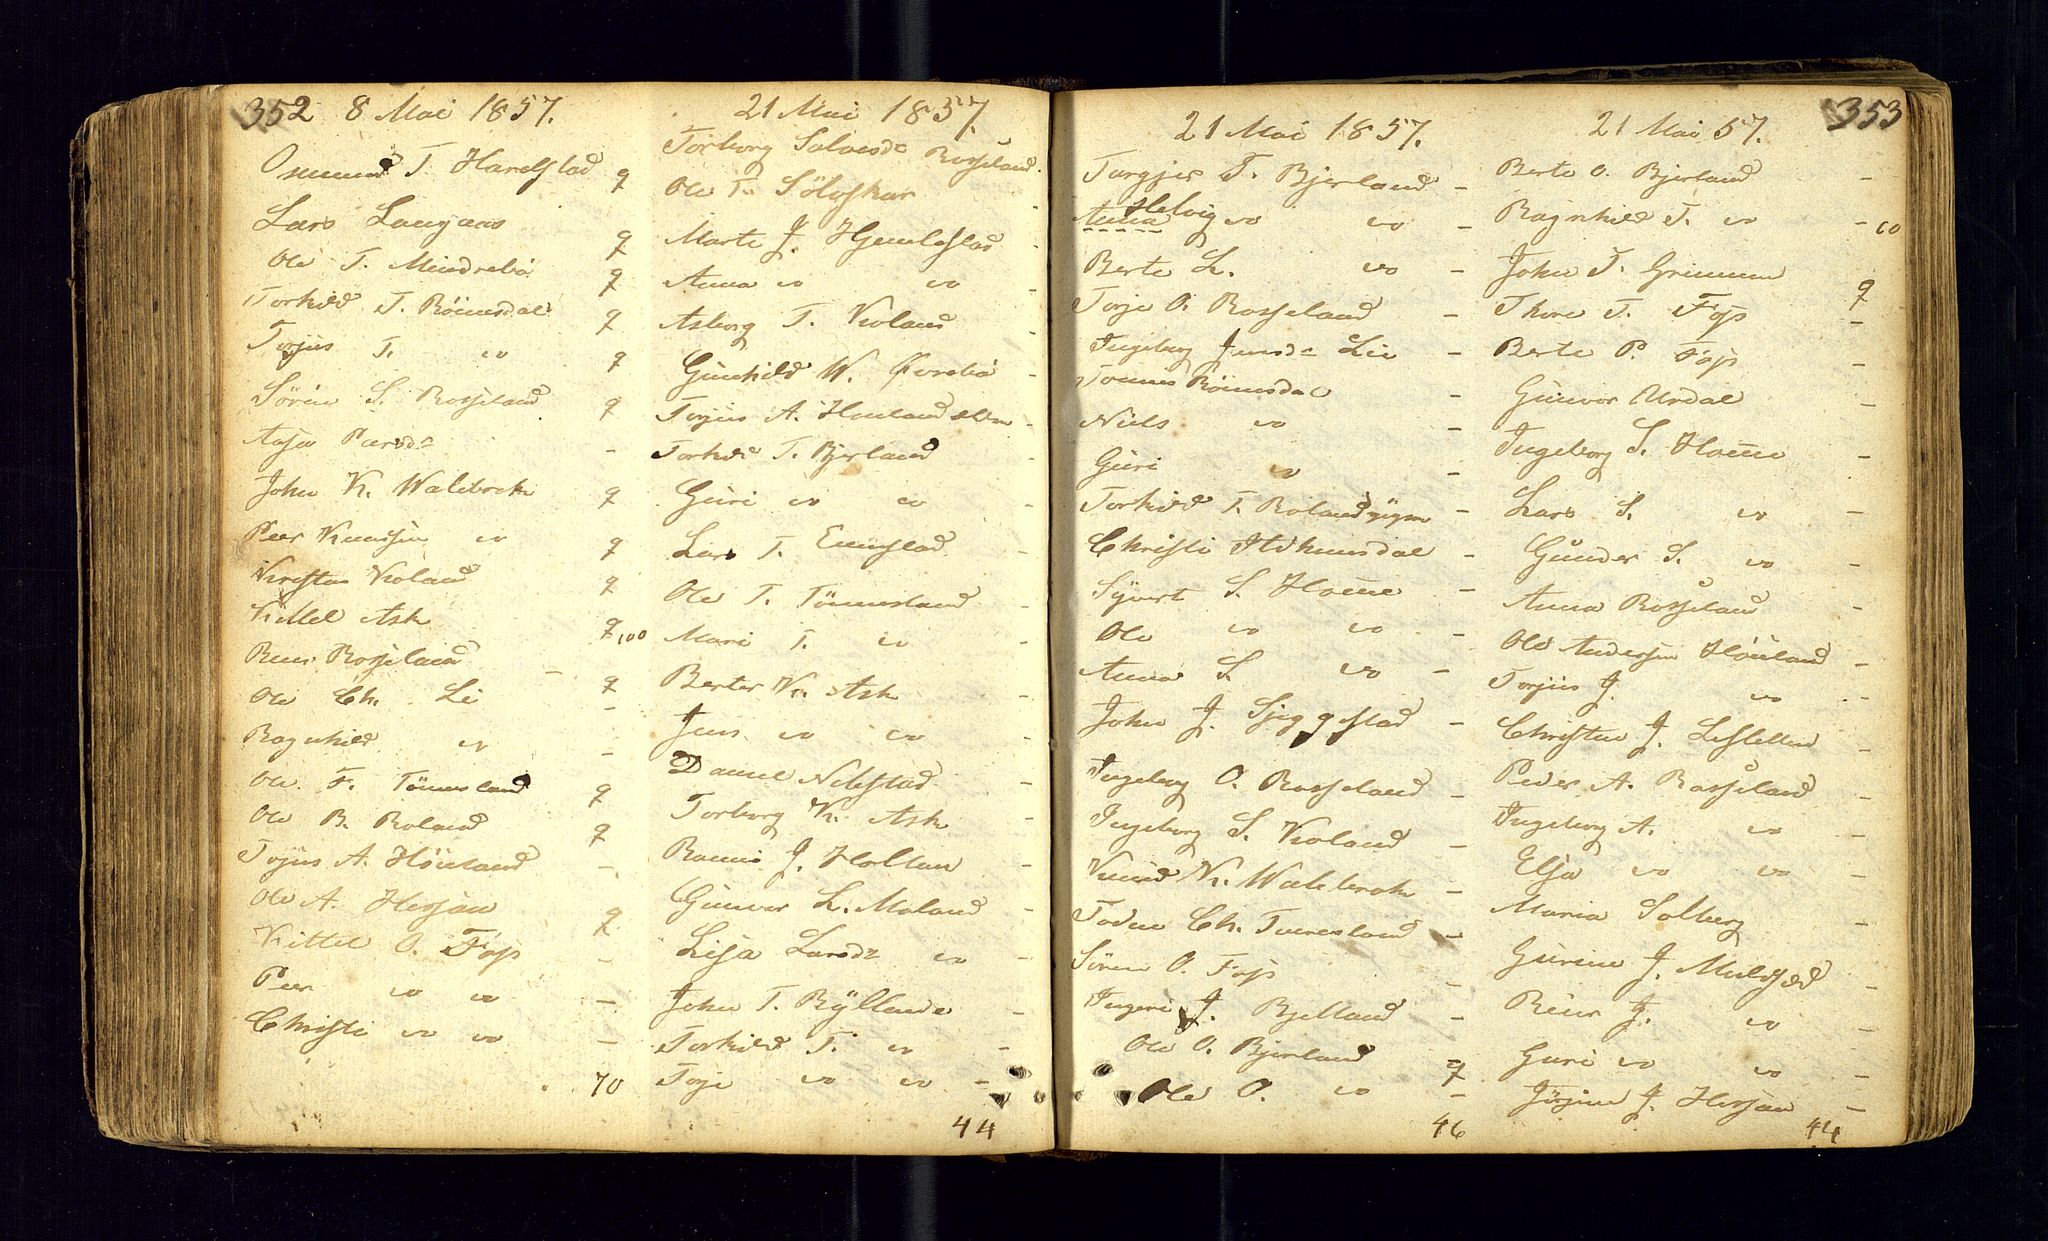 352 8 Mai 1857.
Osmund T. Harelstad q
Lars Laugaas q
Ole T. Mindrebö q
Torkild T. Röinesdal q
Torjus T. vo q
Sören S. Rosseland q
Aase Pærsdr -
John K. Walebrek q
Peer Knudsen vo q
Kristen Kroland q
Kittel Ask q 100
Reier Rosseland - q
Ole Ch. Li -
Ragnhild vo -
Ole F. Tönnesland q
Ole B. Roland q
Tojus A. Höiland -
Ole A. Hesjan q
Kittel O. Fojs -
Peer vo vo -
Christi vo vo -
70
21 Mai 1857.
Torborg Salvesdr Rosseland.
Ole T. Sölvskar -
Marte J. Hemlestad -
Anna vo vo -
Asborg T. Kroland -
Gunhild W. Övrebö -
Torjus A. Houland -
Torkild T. Bjerland -
Guri vo vo -
Lars T. Eunstad -
Ole T. Tönnesland -
Mari T. vo -
Berte K. Ask -
Jens vo vo -
Daniel Nilestad -
Torborg K. Ask -
J. Holtan -
Gunvor L. Moland -
Lisa Larsdr vo -
John T. Rölland -
Torkild T. vo -
Torje vo vo -
44
21 Mai 1857.
Targjer T. Bjerland -
Anna Helvig vo vo -
Berte L. vo -
Torje O. Rosseland -
Ingeborg Jensdr Lie -
Tönnes Röinesdal -
Niels vo -
Guri vo -
Torkild T. Roland -
Christi -
Syvert S. Home -
Ole vo vo -
Anna S. vo -
John J. Sjeggestad -
Ingeborg O. Rosseland -
Ingeborg S. Kroland -
Knud K. Walebrek -
Ch. Tveresland -
Sören O. Fojs -
Ingeri J. Bjelland -
Ole O. Bjerland q
Ole O. vo -
46
21 Mai 57. 353
Berte O. Bjerland -
Ragnhild T. vo - 60
John T. Grimmen q
Thore T. Fojs -
Berte P. Fojs -
Gunvor Urdal -
Ingeborg S. Home -
Lars S. vo -
Gunder S. vo -
Anna Rosseland -
Ole Andersen Höiland -
Torjus J. vo -
Christen J. Lestetten -
Peder A. Rosseland -
Ingeborg A. vo -
Elsa vo vo -
Maria Solberg -
Gurine J. -
Reier J. vo -
Guri vo vo -
Jörgine J. Hesjan -
44